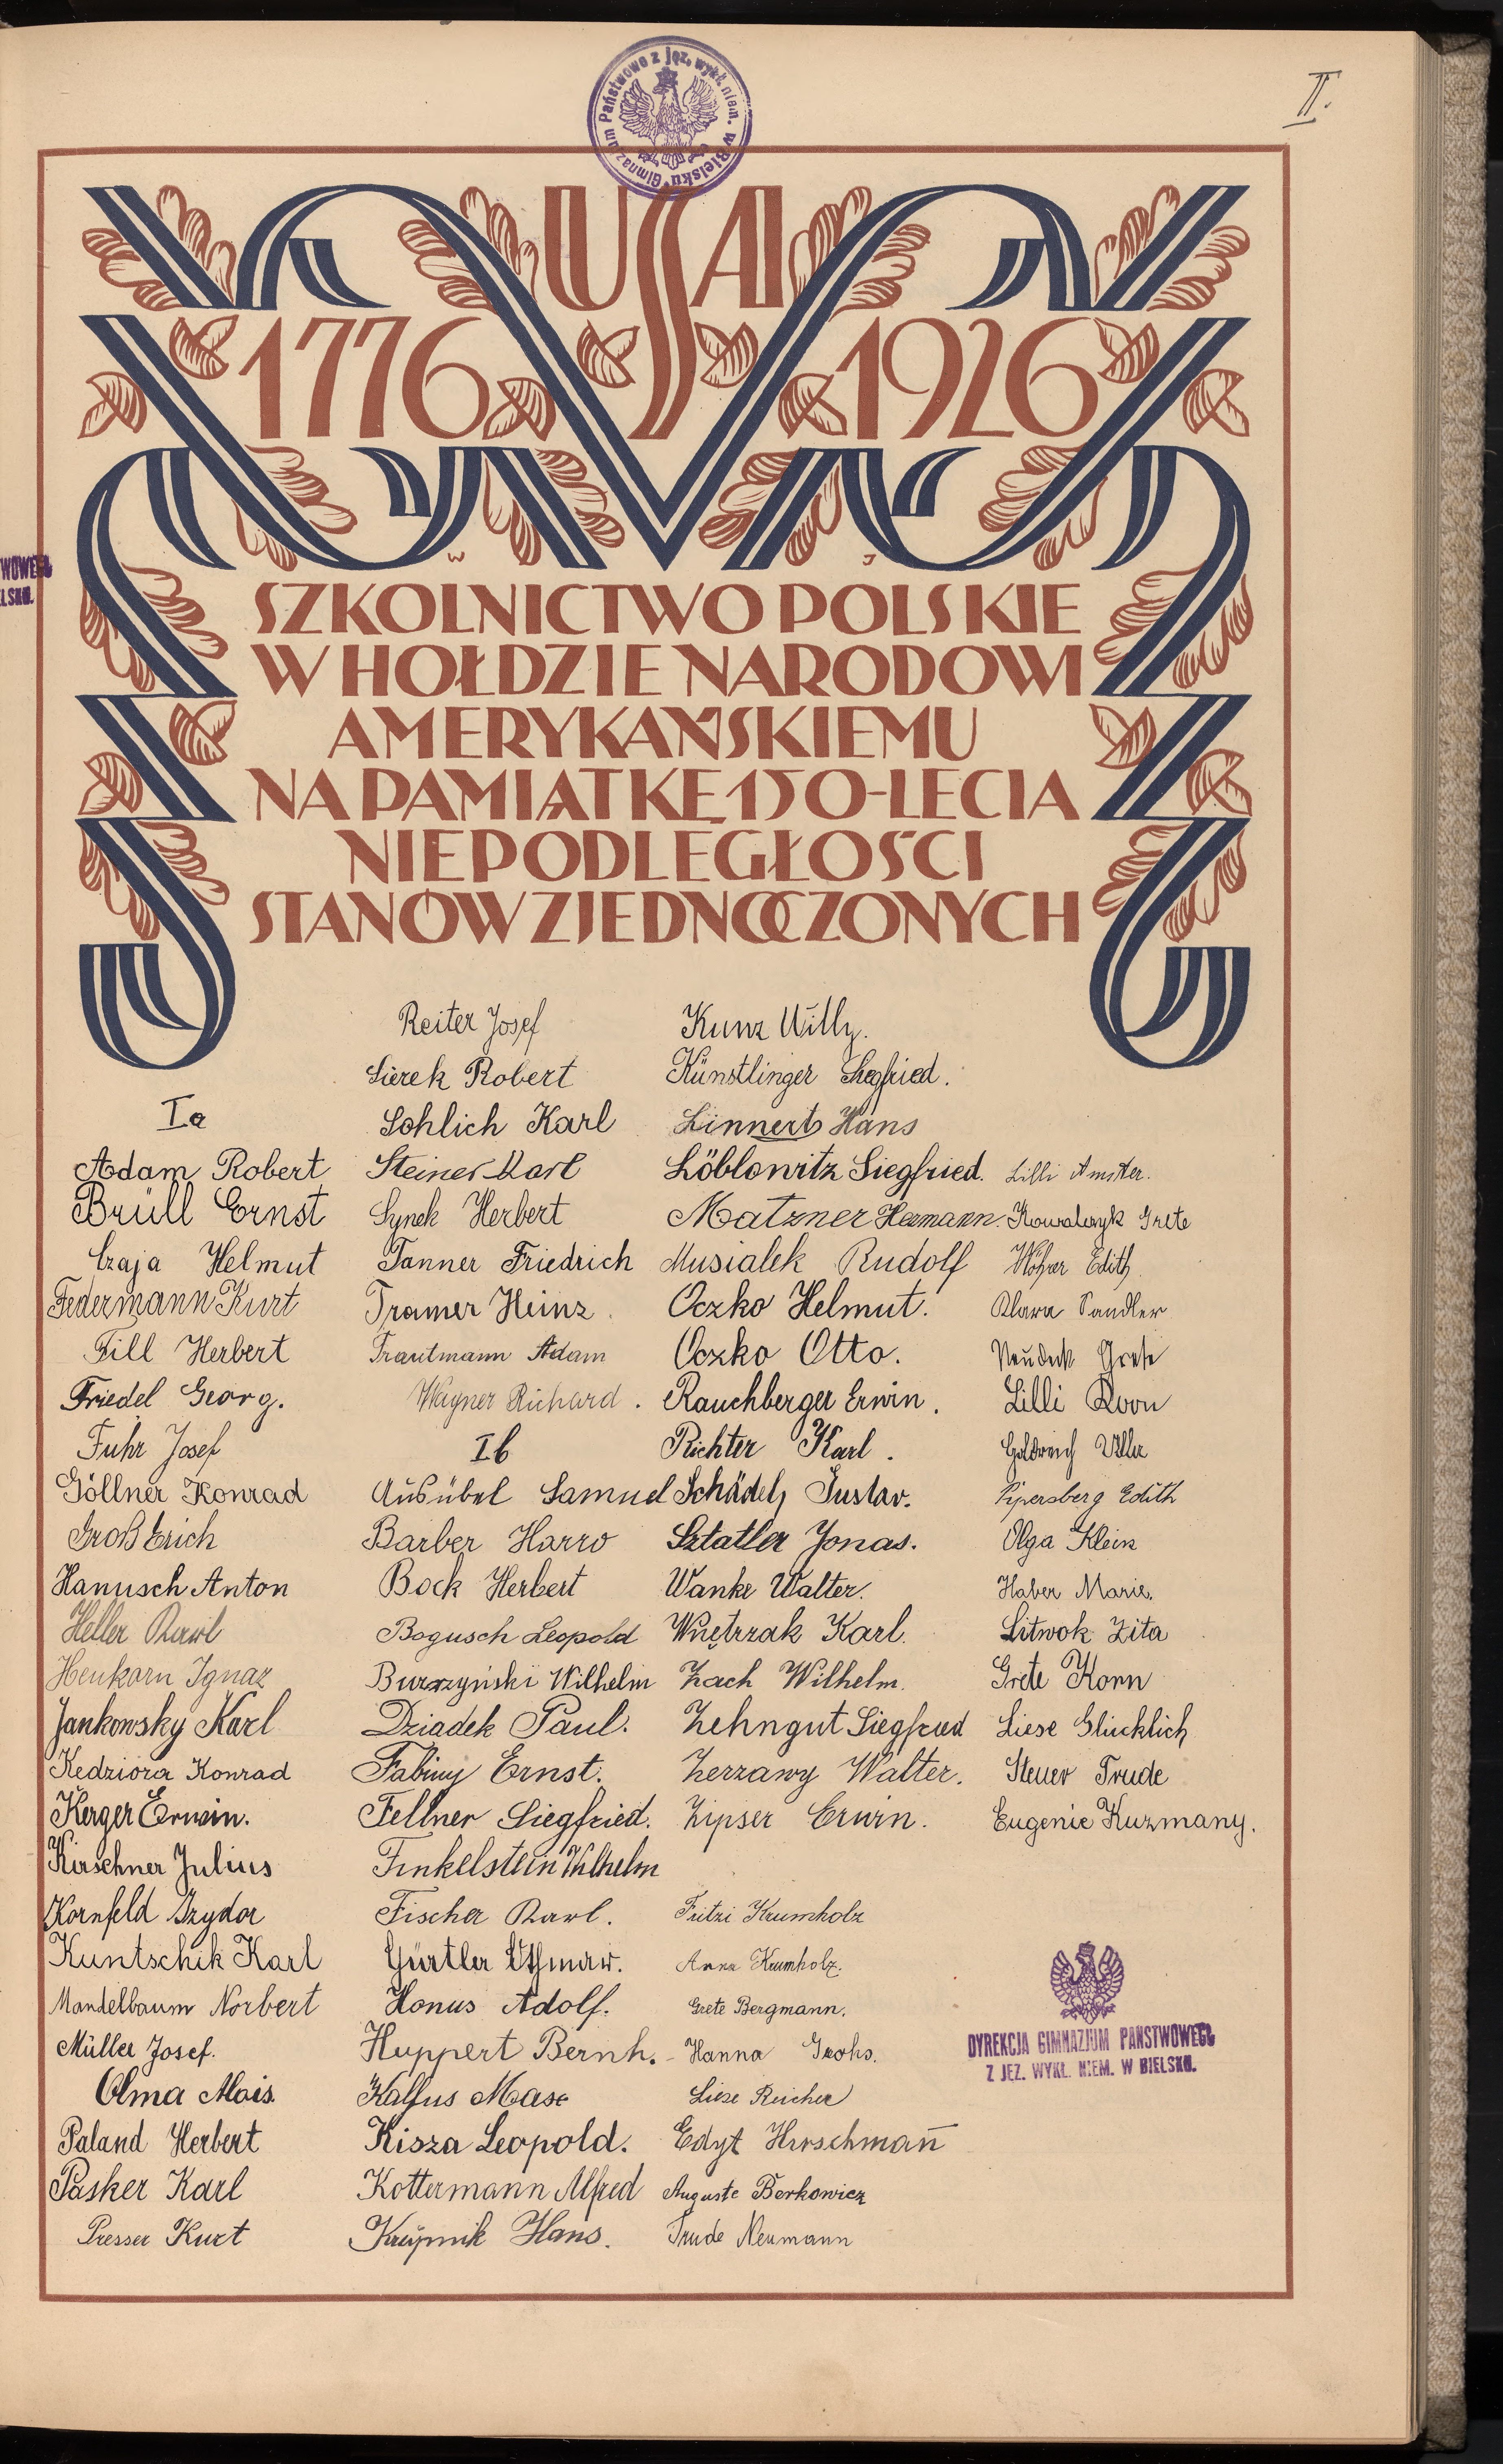 Gimnazjum Państwowe z jęz. wykł. niem. w Bielsku
II.
USA
1776 1926
W J
SZKOLNICTWO POLSKIE
W HOŁDZIE NARODOWI
AMERYKAŃSKIEMU
NA PAMIĄTKĘ 150-LECIA
NIEPODLEGŁOŚCI
STANÓW ZJEDNOCZONYCH
WOWEGO
LSKU.
Ia
Adam Robert
Brüll Ernst
Czaja Helmut
Federmann Kurt
Fill Herbert
Friedel Georg.
Fuhr Josef
Göllner Konrad
Groß Erich
Hanusch Anton
Heller Karl
Henkorn Ignaz
Jankowsky Karl
Kedziora Konrad
Kerger Erwin.
Kirschner Julius
Kornfeld Izydor
Kuntschik Karl
Mandelbaum Norbert
Müller Josef.
Olma Alois.
Paland Herbert
Pasker Karl
Presser Kurt
Reiter Josef
Sierek Robert
Sohlich Karl
Steiner Karl
Synek Herbert
Tanner Friedrich
Tramer Heinz.
Trautmann Adam
Wagner Richard.
Ib
Ausübel Samuel
Barber Harro
Bock Herbert
Bogusch Leopold
Burzyński Wilhelm
Dziadek Paul.
Fabiny Ernst.
Fellner Siegfried.
Finkelstein Wilhelm
Fischer Karl.
Gürtler Othmar.
Honus Adolf.
Huppert Bernh.
Kalfus
Kisza Leopold.
Kottermann Alfred
Krupnik Hans.
Kunz Willy.
Künstlinger Siegfried.
Linnert Hans
Löblowitz Siegfried.
Matzner Hermann.
Musialek Rudolf
Oczko Helmut.
Oczko Otto.
Rauchberger Erwin.
Richter Karl.
Schädel, Gustav.
Sztatler Jonas.
Wanke Walter.
Wnętrzak Karl.
Zach Wilhelm.
Zehngut Siegfried
Zerzawy Walter.
Zipser Erwin.
Fritzi Krumholz
Anna Krumholz.
Grete Bergmann.
Hanna Grohs.
Liese Reicher
Edyt Hirschman̄
Auguste Berkowicz
Trude Neumann
Lilli Amster.
Kowalczyk Grete
Edith
Klara Sandler
Neudeck Grete
Lilli Korn
Goldreich
Pipersberg Edith
Olga Klein
Haber Marie.
Litwok Zita
Grete Korn
Liese Glücklich
Steuer Trude
Eugenie Kuzmany.
DYREKCJA GIMNAZJUM PAŃSTWOWEGO
Z JĘZ. WYKŁ. NIEM. W BIELSKU.